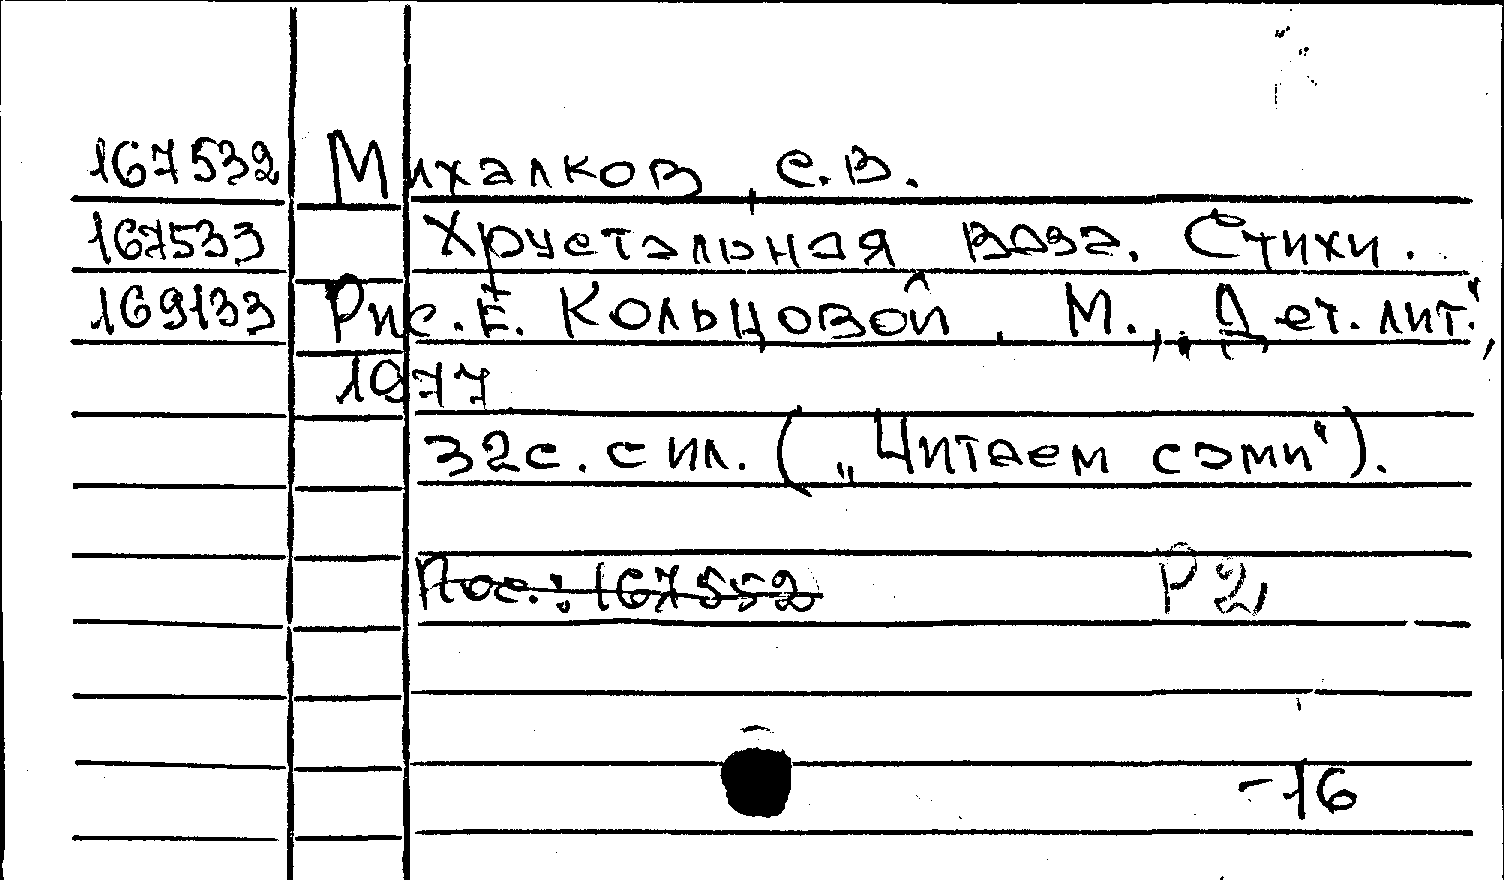 167532 Михалков, С.В.
167533 Хрустальная ваза. Стихи.
169133 Рис. Е. Кольцовой. М., „Дет. лит.",
1977
32с. с ил. („Читаем сами").
Пос.: 167552 Р2
-16